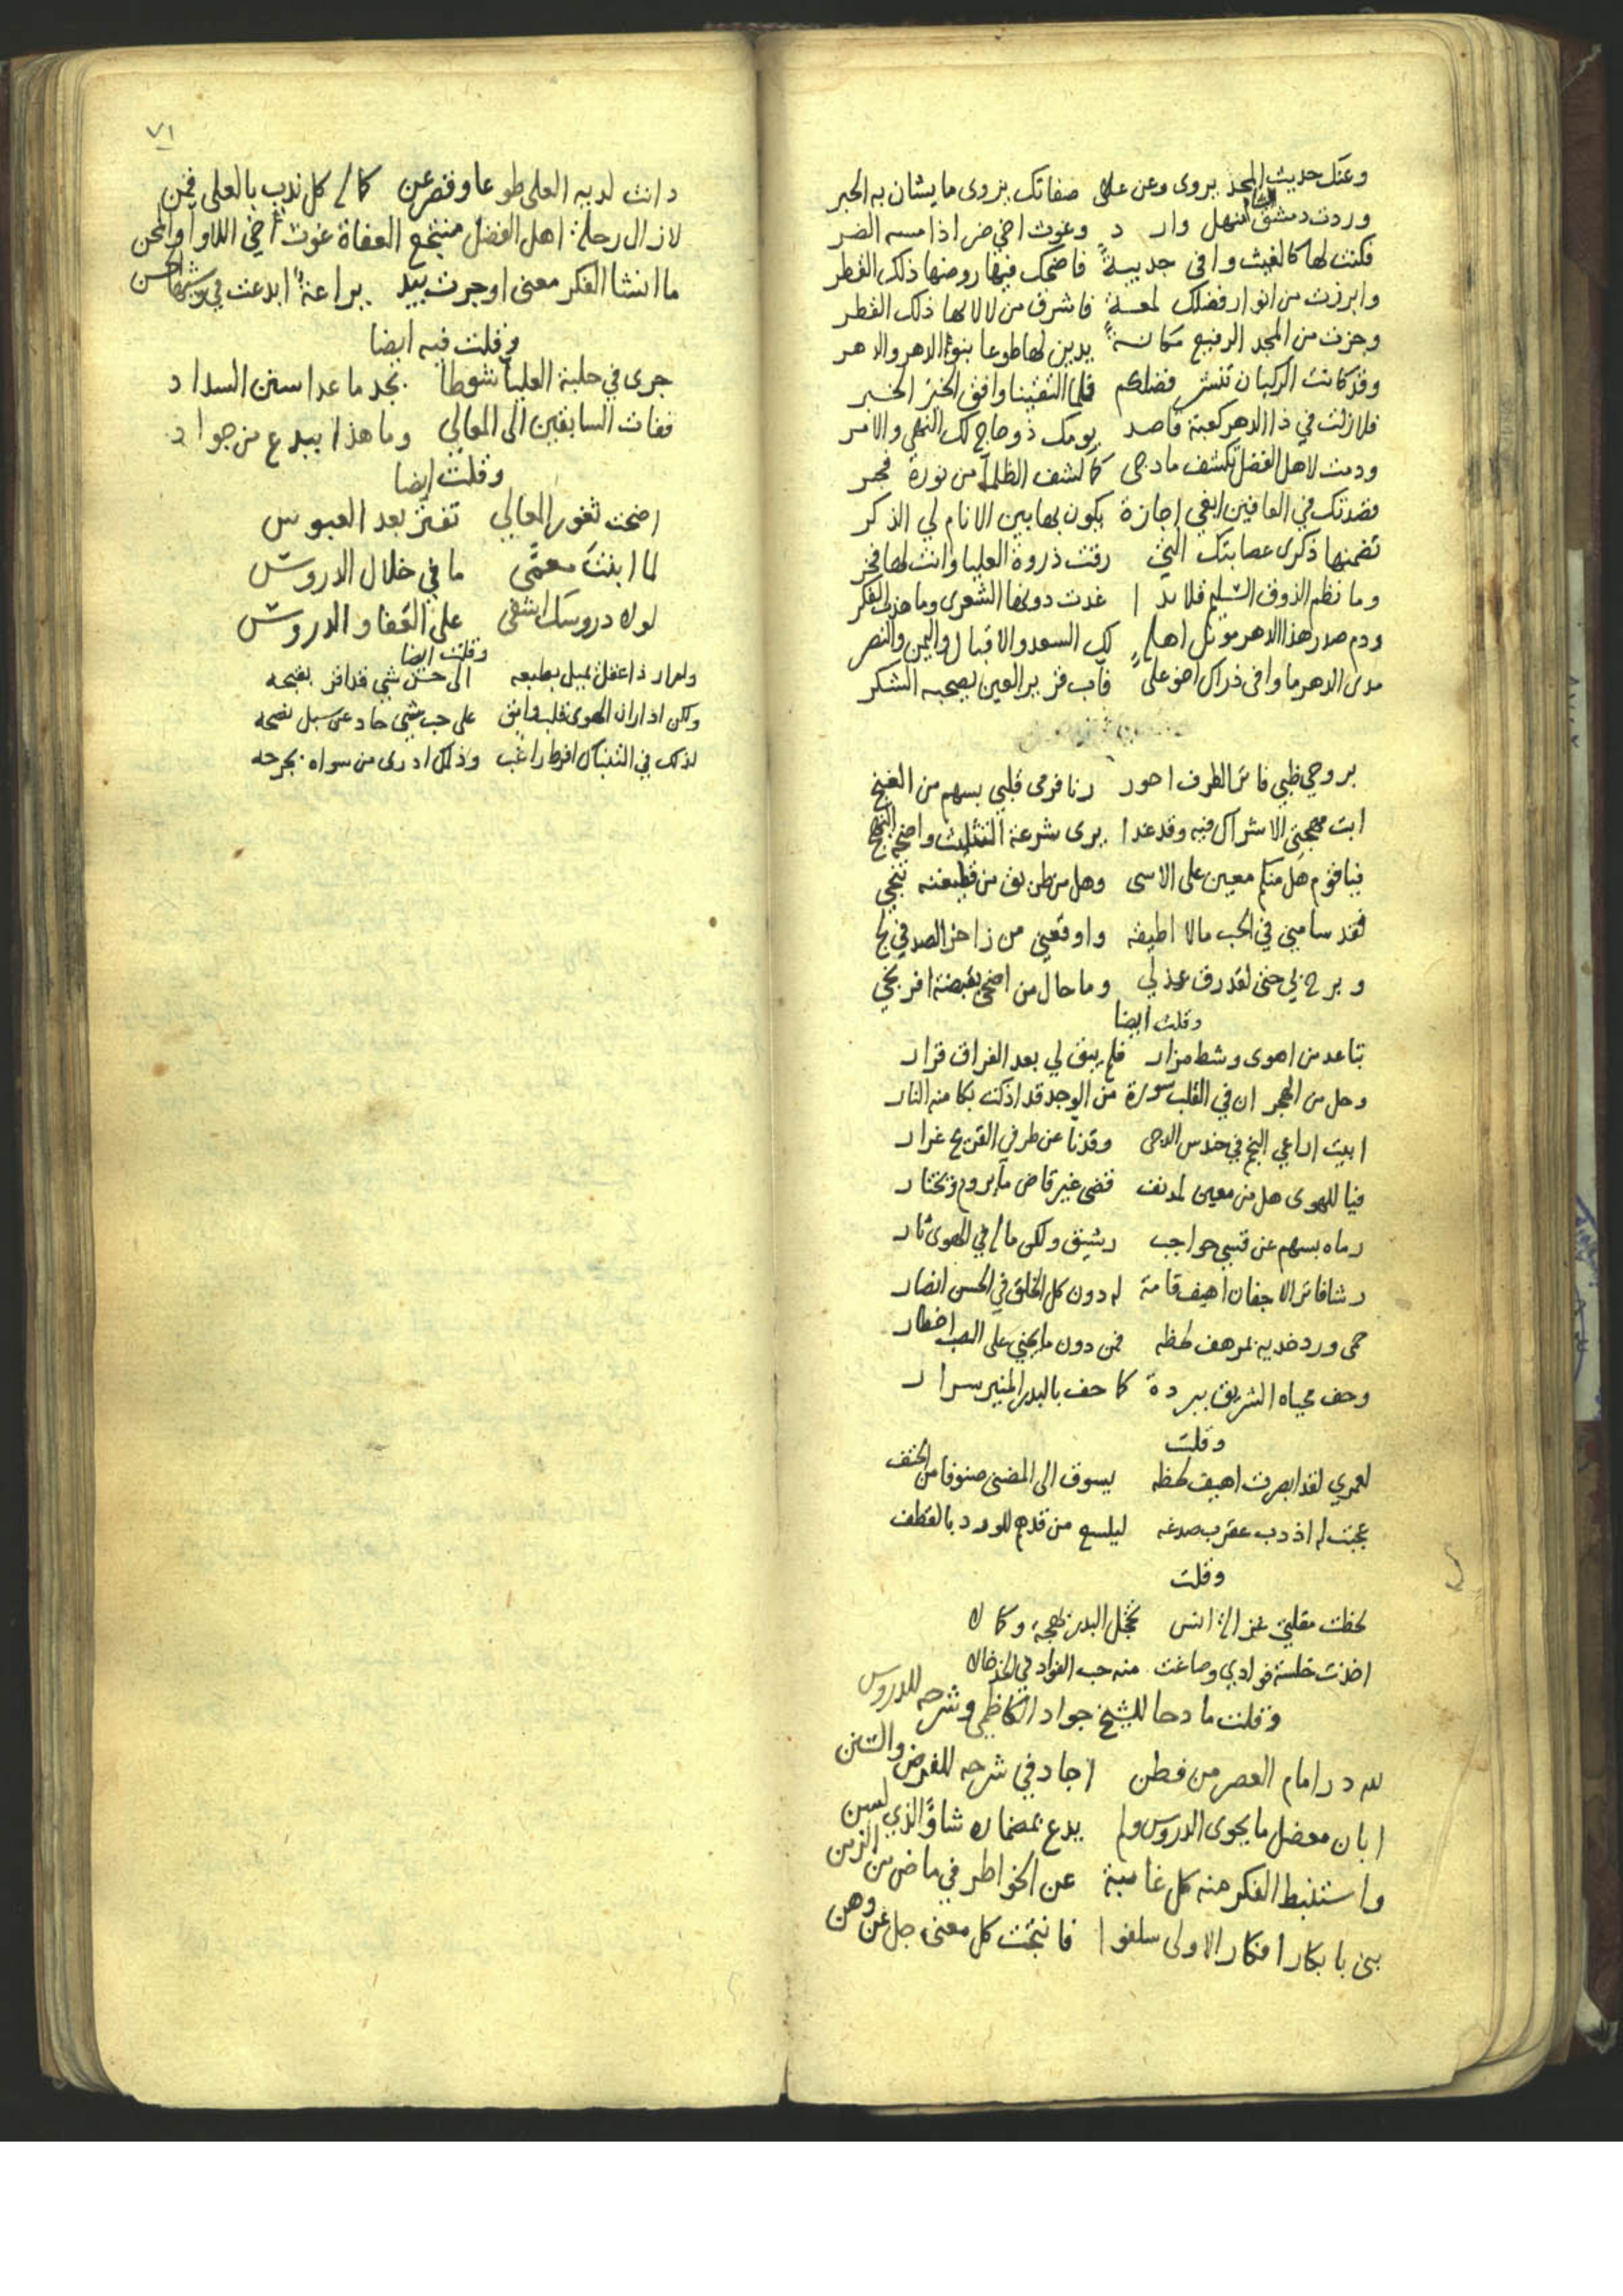 وعنك حديث المجد يروى وعن علاى صفاتك يروى ما يشان به الحبر
وردت دمشق الشام انهل وارد وغوث اخي ضر اذا مسه الضر
فكنت لها كالغيث وافى جديبة فاضحك فيها روضها ذلك القطر
وابرزت من انوار فضلك لمعة فاشرق من لالائها ذلك القطر
وحزت من المجد الرفيع مكانة يدين لها طوعا بنو الدهر والدهر
وقد كانت الركبان تنشر فضلكم فلما التقينا وافق الخبر الخبر
فلا زلت في ذا الدهر كعبة قاصد يومك ذو حاج لك النهي والامر
ودمت لاهل الفضل تكشف ما دجى كما كشف الظلمآ من نوره فجر
قصدتك في العافين ابغي اجازة يكون بها بين الانام لي الذكر
تضمنها ذكرى عصابتك التي رقت ذروة العليا وانت لها فخر
وما نظم الذوق السليم قلائدا غدت دونها الشعرى وما هذب الفكر
ودم صدر هذا الدهر موئل اهله لك السعد والاقبال واليمن والنصر
مدى الدهر ما وافى ذراك اخو على فآب قرير العين يصحبه الشكر
بروحي ظبي فاتر الطرف احور رنا فرمى قلبي بسهم من الغنج
ابت مهجتي الاشراك فيه وقد غدا يرى شرعة التثليث واضحة النهج
فيا قوم هل منكم معين على الاسى وهل من طريق من قطيعته تنجي
لقد سامني في الحب مالا اطيقه واوقعني من زاخر الصد في لج
وبرح بي حتى لقد رق عذلي وما حال من اضحى بقبضة افرنجي
وقلت ايضا
تباعد من اهوى وشط مزار فلم يبق لي بعد الفراق قرار
وحل من الهجران في القلب سورة من الوجد قد اذكت بكامنه النار
ابيت اراعي النجم في حندس الدجى وقد نآ عن طرفي القريح غرار
فيا للهوى هل من معين لمدنف قضى غير قاض ما يروم ويختار
رماه بسهم عن قسي حواجب رشيق ولكن ماله في الهوى ثار
رشا فاتر الاجفان اهيف قامة له دون كل الخلق في الحسن انصار
حمى ورد خديه بمرهف لحظه فمن دون ما يجني على الصب اخطار
وحف محياه الشريق ببردة كما حف بالبدر المنير سرار
وقلت
لعمري لقد ابصرت اهيف لحظه يسوق الى المضنى صنوفا من الحتف
عجبت له اذ دب عقرب صدغه ليلسع من قدم للورد بالقطف
وقلت
لحظت مقلتي غزالا انس يخجل البدر بهجة وكمالا
اخذت خلسة فوادي وصاغت منه حب الفواد في الخد خالا
وقلت مادحا للشيخ جواد الكاظمي وشرحه للدروس
لله در امام العصر من فطن اجاد في شرحه للفرض والسنن
ابان معضل ما يحوى الدروس ولم يدع بمضماره شاوًا لذي لسن
واستنبط الفكر منه كل غامضة عن الخواطر في ماض من الزمن
بنى بابكار افكار الاولى سلفوا فانتجت كل معنى جل عن وهن
٧١
دانت لديه العلى طوعا وقصر عن كماله كل ندب بالعلى قمن
لازال رحلة اهل الفضل منتجع العفاة غوث اخي اللاوا والمحن
ما انشا الفكر معنى او جرت بيد يراعة ابدعت في وشيها الحسن
وقلت فيه ايضا
جرى في حلبة العليآ شوطا بجد ما عدا سنن السداد
ففات السابقين الى المعالي وما هذا ببدع من جواد
وقلت ايضا
اضحت ثغور المعالي تفتر بعد العبوس
لما ابنت معمى ما في خلال الدروس
لولا دروسك اشفى على العفا والدروس
وقلت ايضا
ولم ار ذا عقل يميل بطبعه الى حسن شي قد اقر بقبحه
ولكن اذا ران الهوى قلب وامق على حب شي حاد عن سبل نصحه
لذلك في التنباك افرط راغب وذلك ادرى من سواه بجرحه